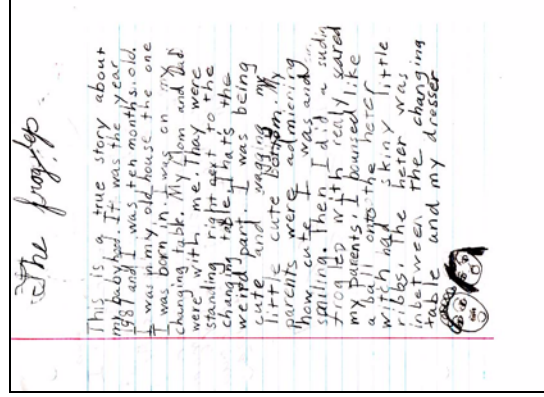 The frog lep
This is a true story about
my babyhood. It was the year
1987 and I was ten months old.
I was in my old house the one
I was born in. I was on my
changing table. My Mom and Dad
were with me. Thay were
standing right next to the
changing table. Thats the
weird part. I was being
cute and wagging my
little cute bottom. My
parents were admiering
how cute I was and
smiling. Then I did a sudin
frog lep witch realy scared
my parents. I bounsed like
a ball onto the heter
witch had skiny little
ribbs. The heter was
inbetween the changing
table and my dresser